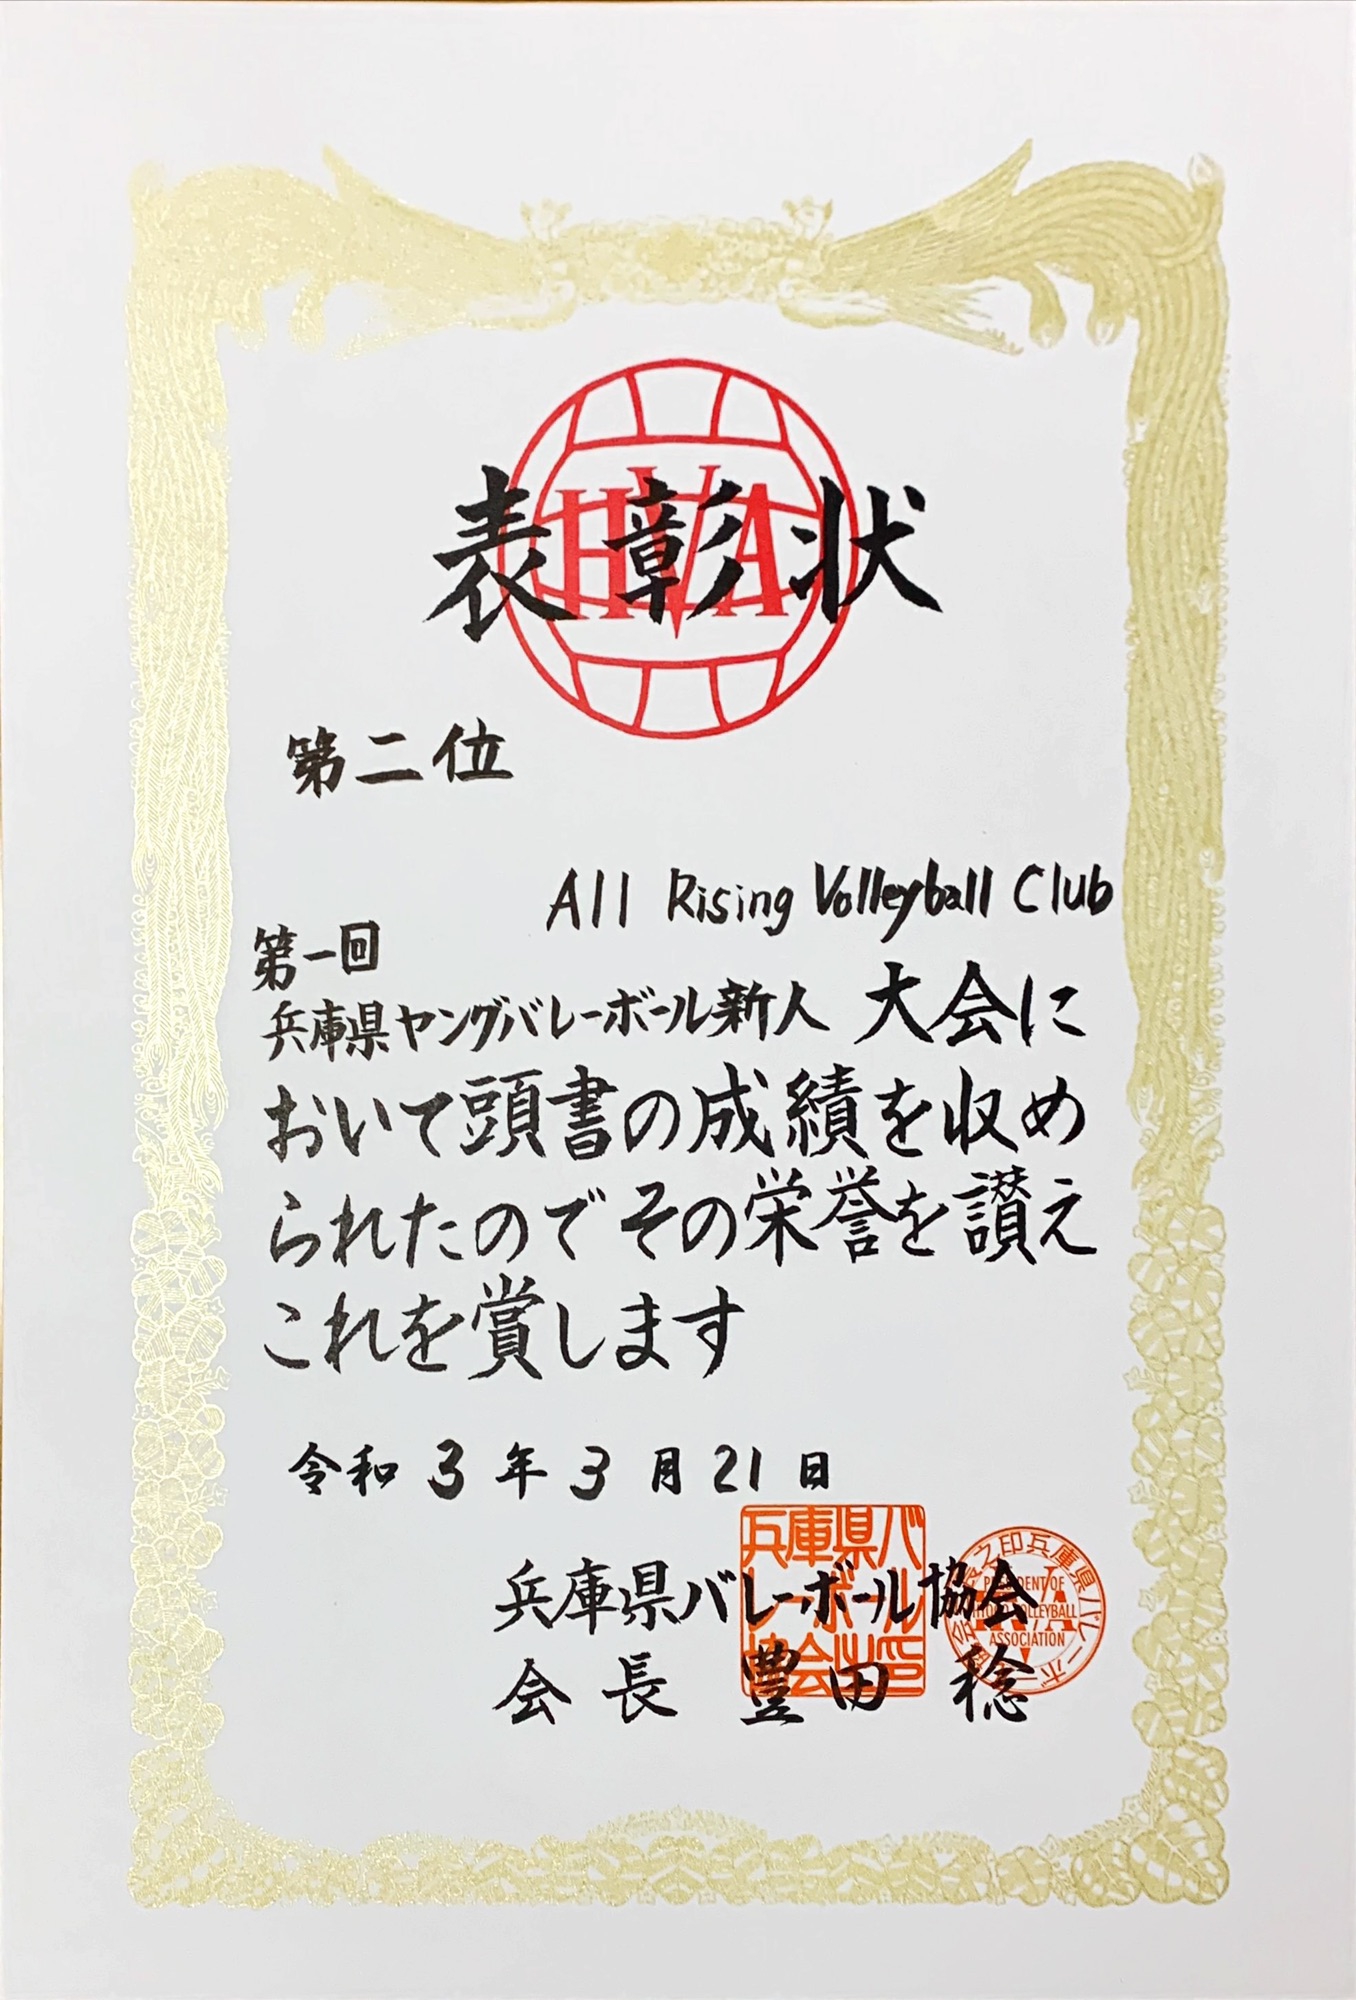 HVA
表彰状
第二位
All Rising Volleyball Club
第一回
兵庫県ヤングバレーボール新人 大会に
おいて頭書の成績を収め
られたのでその栄誉を讃え
これを賞します
令和 3 年 3 月 21 日
兵庫県バレーボール協会
会長 豊田 稔
兵庫県バ
レーボール
協会之印
ASSOCIATION